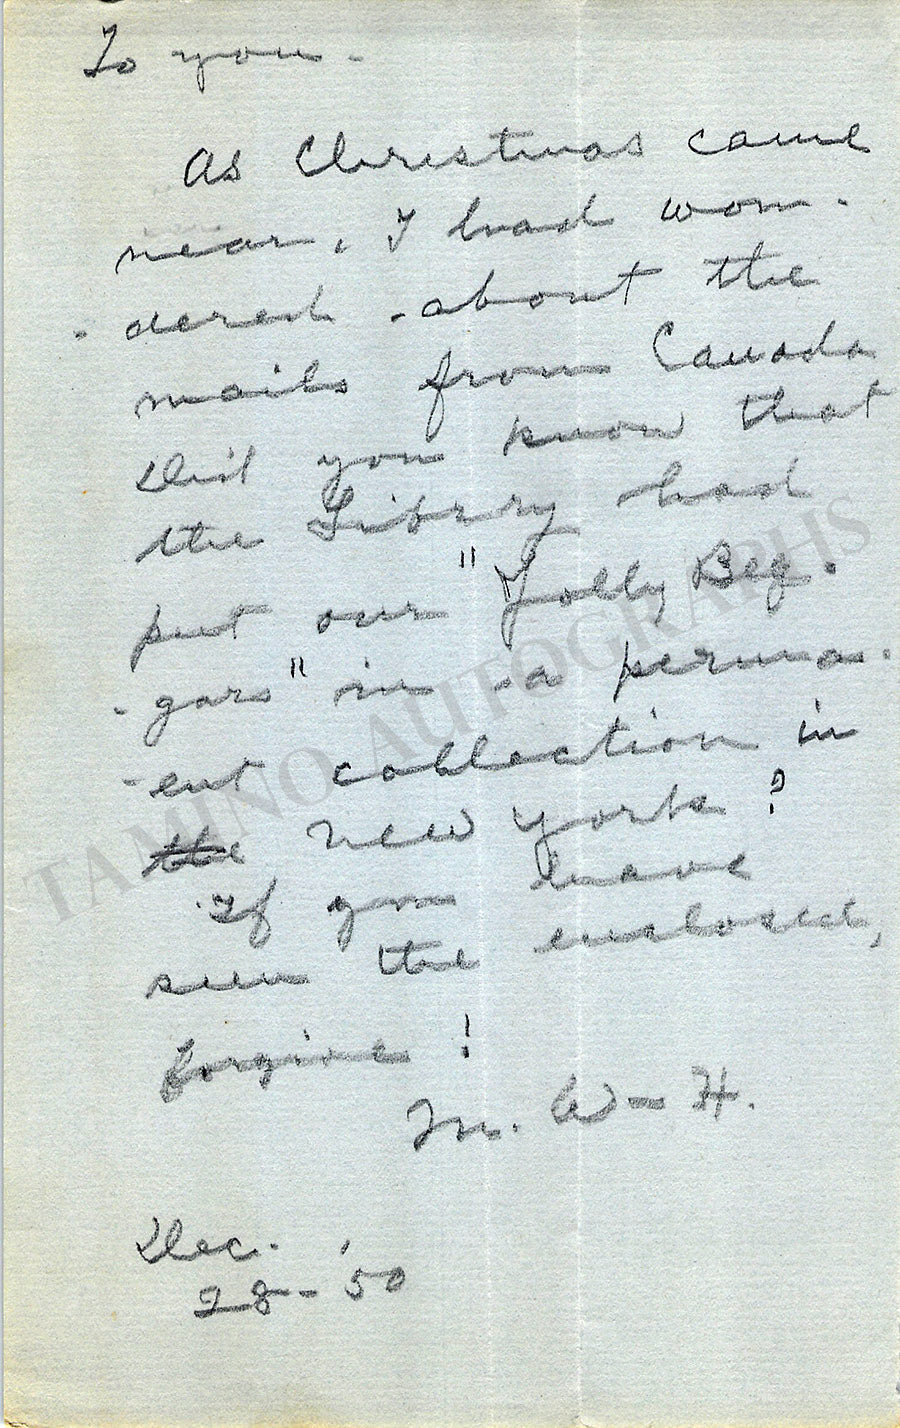 To you -
As Christmas came
near, I had won-
-dered - about the
mails from Canada
Did you know that
the Library had
put our "Jolly Beg-
-gars" in a perma-
-ent collection in
the New York?
If you have
seen the enclosed,
forgive!
M. W - H.
Dec.
28 - '50
TAMINO AUTOGRAPHS